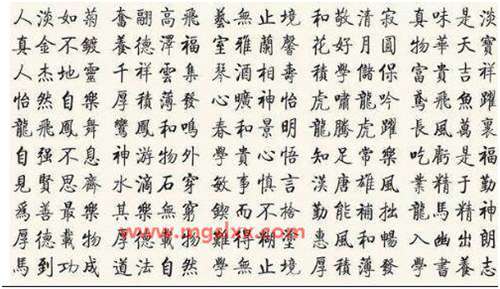 人淡如菊 奮翮高飛 藝無止境 和敬清寂 真味是淡
真金不鍍 養德澤福 室雅蘭馨 花好月圓 物華天寶
人杰地靈 千祥雲集 琴酒相壽 積學儲保 富貴吉祥
怡然自樂 厚積薄發 心曠神怡 虎嘯龍吟 鳶飛魚躍
龍飛鳳舞 鸞鳳和鳴 春和景明 龍騰虎躍 長風萬裏
自强不息 神游物外 學貴心悟 知足常樂 吃虧是福
見賢思齊 水滴石穿 敏事慎言 漢唐雄風 業精于勤
爲善最樂 其樂無窮 鍥而不捨 勤能補拙 龍馬精神
厚德載物 難得糊塗 惠風和暢 入幽出朗
馬到功成 道法自然 學無止境 厚積薄發